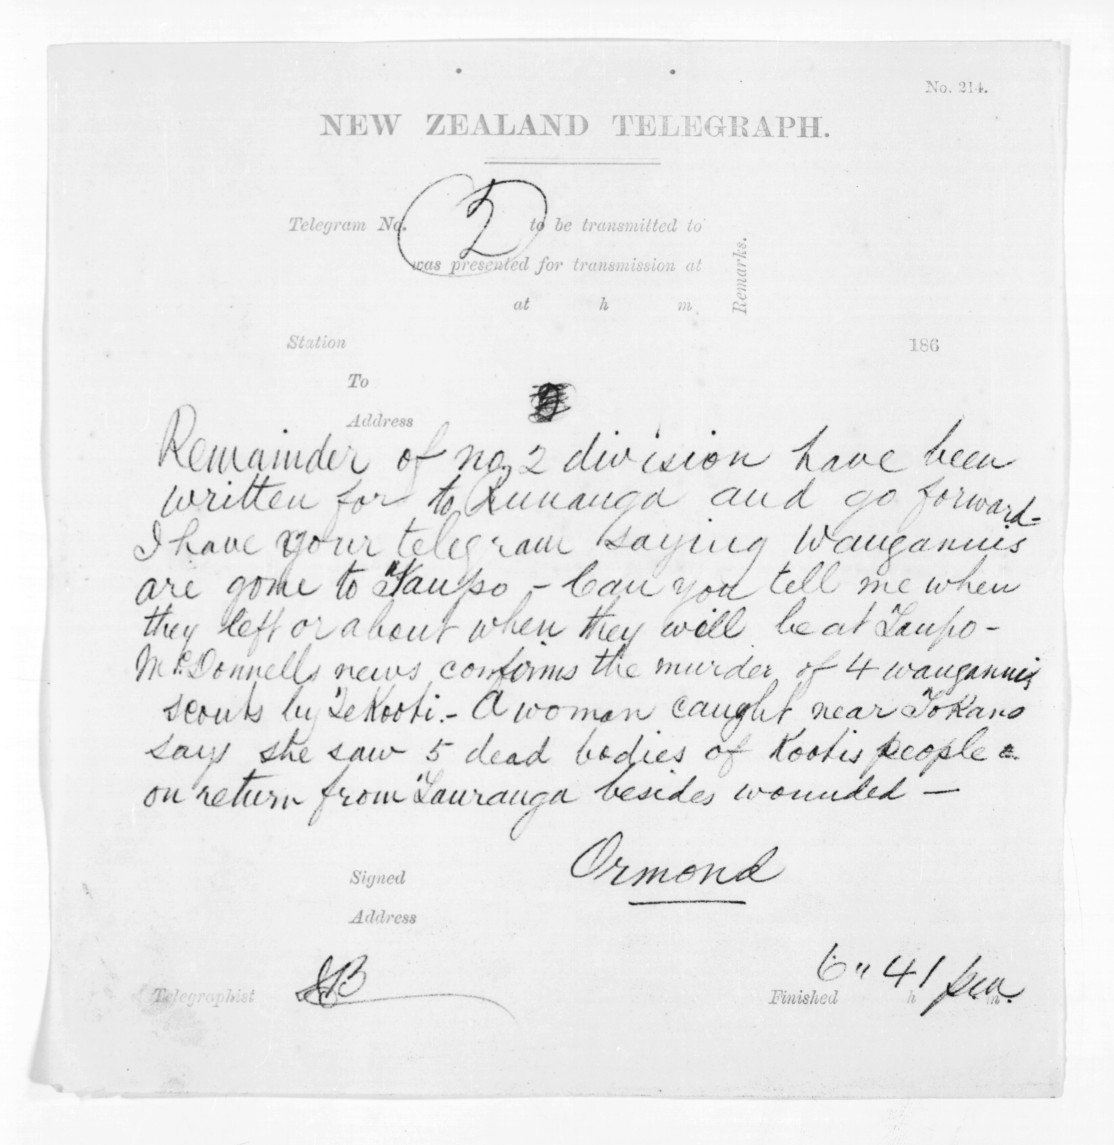 No. 214.
NEW ZEALAND TELEGRAPH.
Telegram No. 2 to be transmitted to
was presented for transmission at
at h m.
Remarks.
Station 186
To
Address
Remainder of no 2 division have been
written for to Runanga and go forward-
I have your telegram saying Wangannis
are gone to Taupo - Can you tell me when
they left or about when they will be at Taupo -
McDonnells news confirms the murder of 4 wangannis
scouts by TeKooti. - A woman caught near Tokano
says she saw 5 dead bodies of Kootis people
on return from Tauranga besides wounded -
Signed Ormond
Address
Telegraphist
Finished 6 " 41 pm.